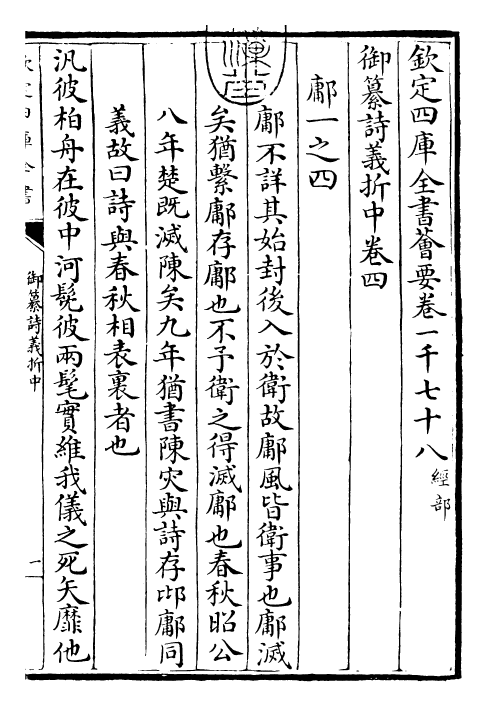 欽定四庫全書薈要卷一千七十八經部
御纂詩義折中卷四
鄘一之四
鄘不詳其始封後入於衛故鄘風皆衛事也鄘滅
矣猶繫鄘存鄘也不予衛之得滅鄘也春秋昭公
八年楚既滅陳矣九年猶書陳灾與詩存邶鄘同
義故曰詩與春秋相表裏者也
汎彼柏舟在彼中河髧彼兩髦實維我儀之死矢靡他
欽定四庫全書
御纂詩義折中